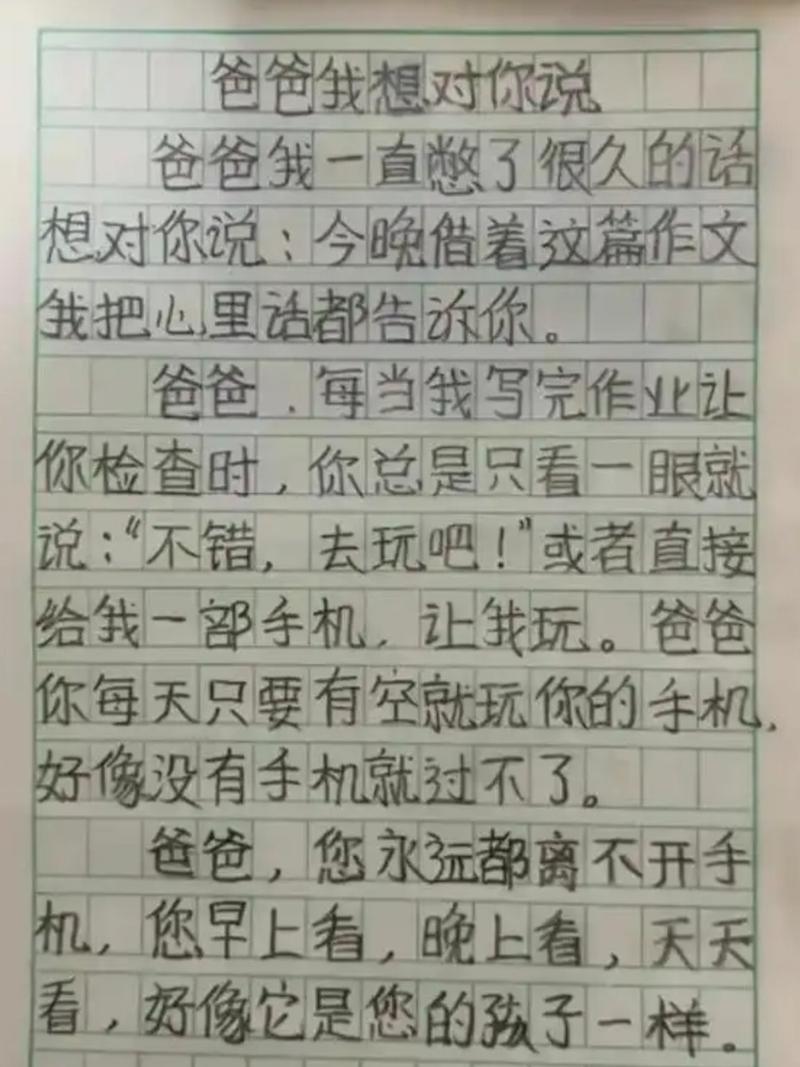 爸爸我想对你说
爸爸我一直憋了很久的话
想对你说：今晚借着这篇作文
我把心里话都告诉你。
爸爸．每当我写完作业让
你检查时，你总是只看一眼就
说：“不错，去玩吧！”或者直接
给我一部手机，让我玩。爸爸
你每天只要有空就玩你的手机，
好像没有手机就过不了。
爸爸，您永远都离不开手
机，您早上看，晚上看，天天
看，好像它是您的孩子一样。